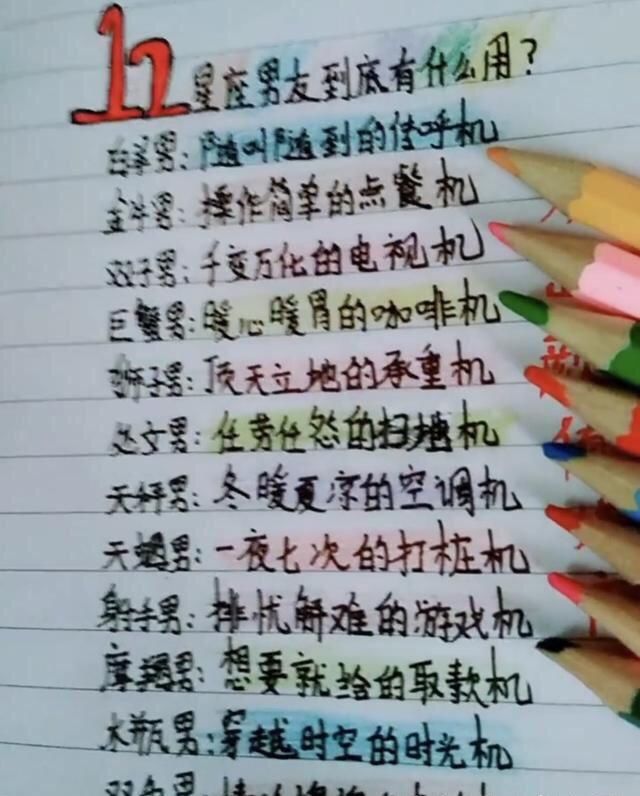 12星座男友到底有什么用?
白羊男:随叫随到的传呼机
金牛男:操作简单的点餐机
双子男:千变万化的电视机
巨蟹男:暖心暖胃的咖啡机
狮子男:顶天立地的承重机
处女男:任劳任怨的扫地机
天秤男:冬暖夏凉的空调机
天蝎男:一夜七次的打桩机
射手男:排忧解难的游戏机
摩羯男:想要就给的取款机
水瓶男:穿越时空的时光机
双鱼男: